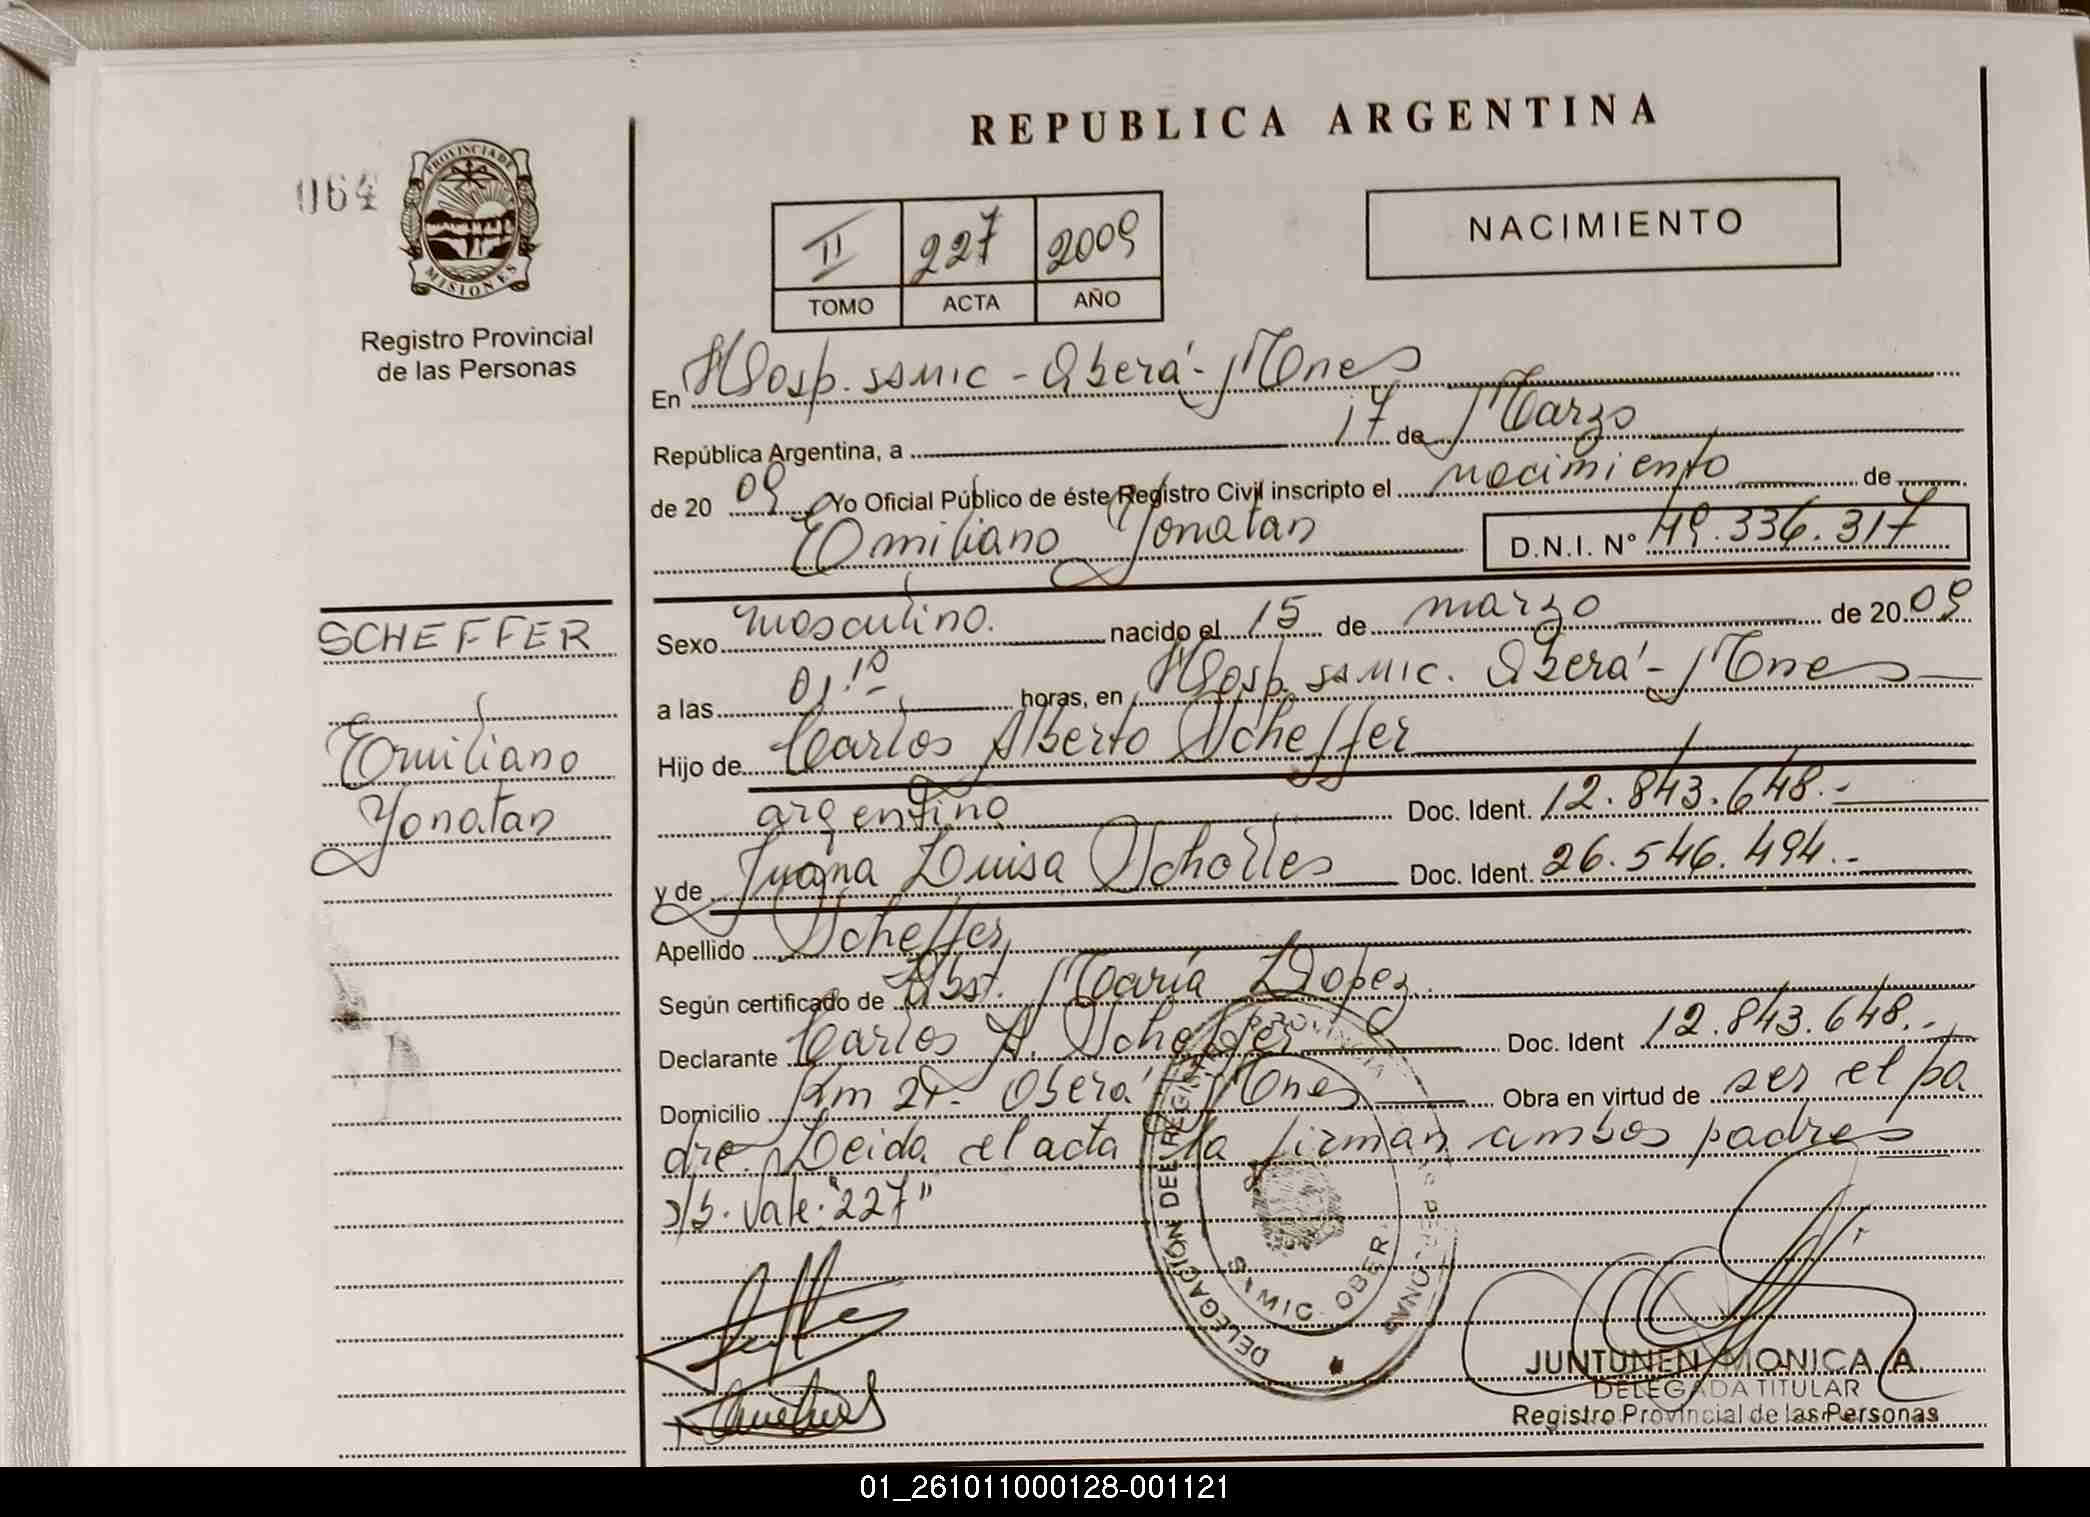 REPUBLICA ARGENTINA
064
PROVINCIA DE
MISIONES
Registro Provincial
de las Personas
II 227 2009
TOMO ACTA AÑO
NACIMIENTO
En Hosp. SAMIC - Oberá - Mnes
República Argentina, a 17 de Marzo
de 20 09 Yo Oficial Público de éste Registro Civil inscripto el nacimiento de
Emiliano Yonatan D.N.I. Nº 49.336.317
SCHEFFER
Emiliano
Yonatan
Sexo masculino. nacido el 15 de marzo de 20 09
a las 01.10 horas, en Hosp. SAMIC. Oberá - Mnes
Hijo de Carlos Alberto Scheffer
argentino Doc. Ident. 12.843.648.-
y de Juana Luisa Scholles Doc. Ident. 26.546.494.-
Apellido Scheffer
Según certificado de Obst. María Lopez.
Declarante Carlos A. Scheffer Doc. Ident 12.843.648.-
Domicilio Km 24- Oberá Mnes Obra en virtud de ser el pa
dre. Leida el acta la firman ambos padres
s/b. Vale: "227"
DELEGACIÓN DEL REGISTRO PROVINCIAL
SAMIC. OBERÁ
JUNTUNEN MONICA A.
DELEGADA TITULAR
Registro Provincial de las Personas
01_261011000128-001121